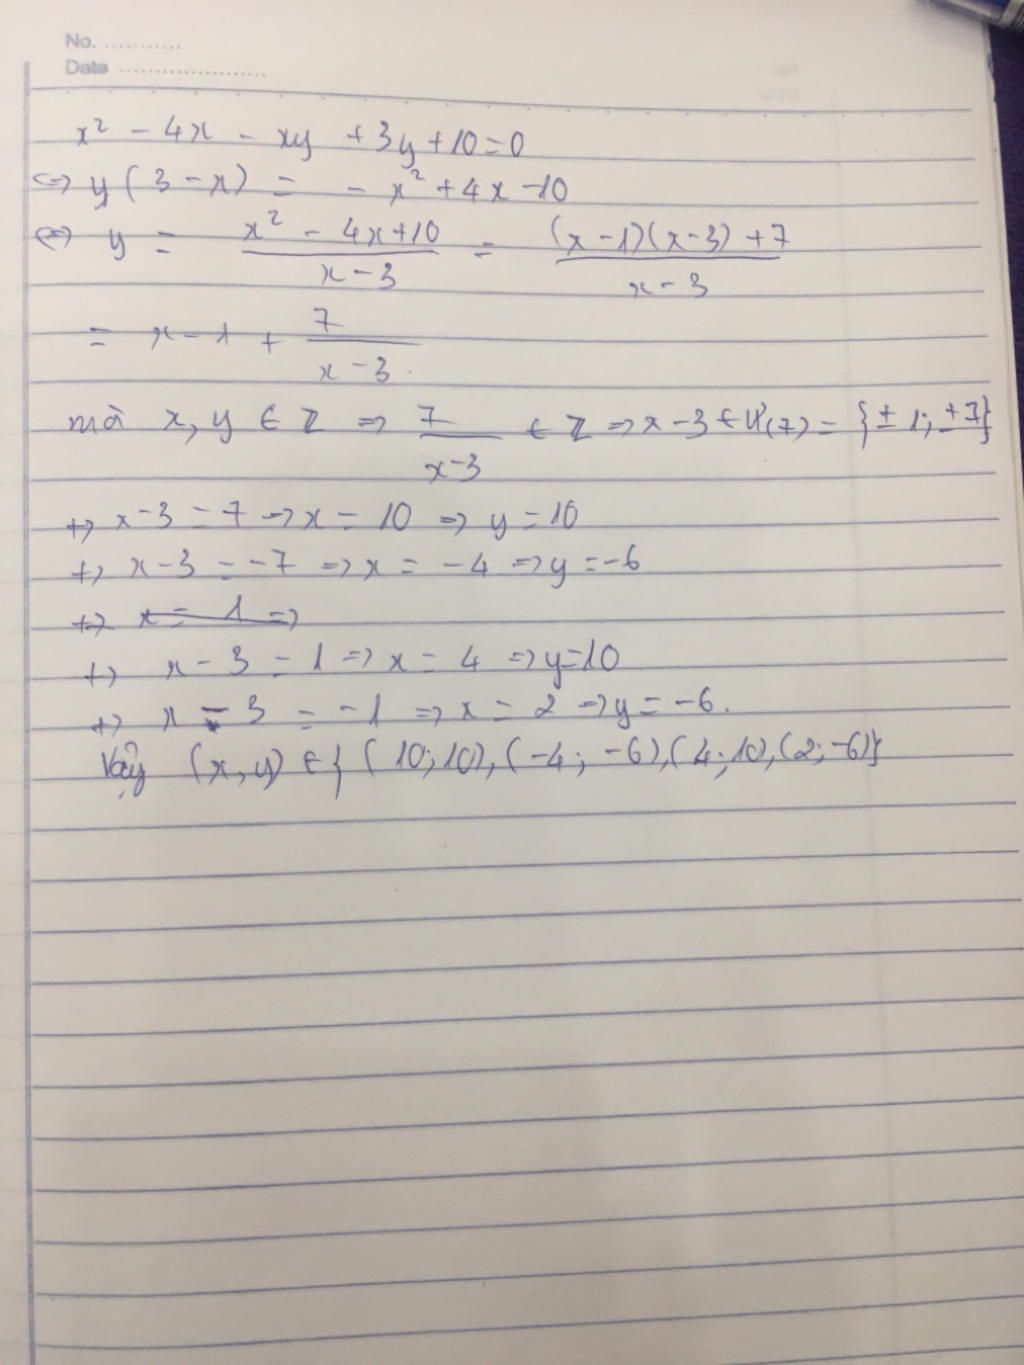 No. ...........
Date ......................
x² - 4x - xy + 3y + 10 = 0
<=> y(3 - x) = - x² + 4x - 10
<=> y = (x² - 4x + 10)/(x - 3) = ((x - 1)(x - 3) + 7)/(x - 3)
= x - 1 + 7/(x - 3).
mà x, y ∈ Z => 7/(x - 3) ∈ Z => x - 3 ∈ Ư(7) = {± 1; ± 7}
+> x - 3 = 7 => x = 10 => y = 10
+> x - 3 = -7 => x = -4 => y = -6
+> x = 1 =>
+> x - 3 = 1 => x = 4 => y = 10
+> x - 3 = -1 => x = 2 => y = -6.
Vậy (x, y) ∈ { (10; 10), (-4; -6), (4; 10), (2; -6)}